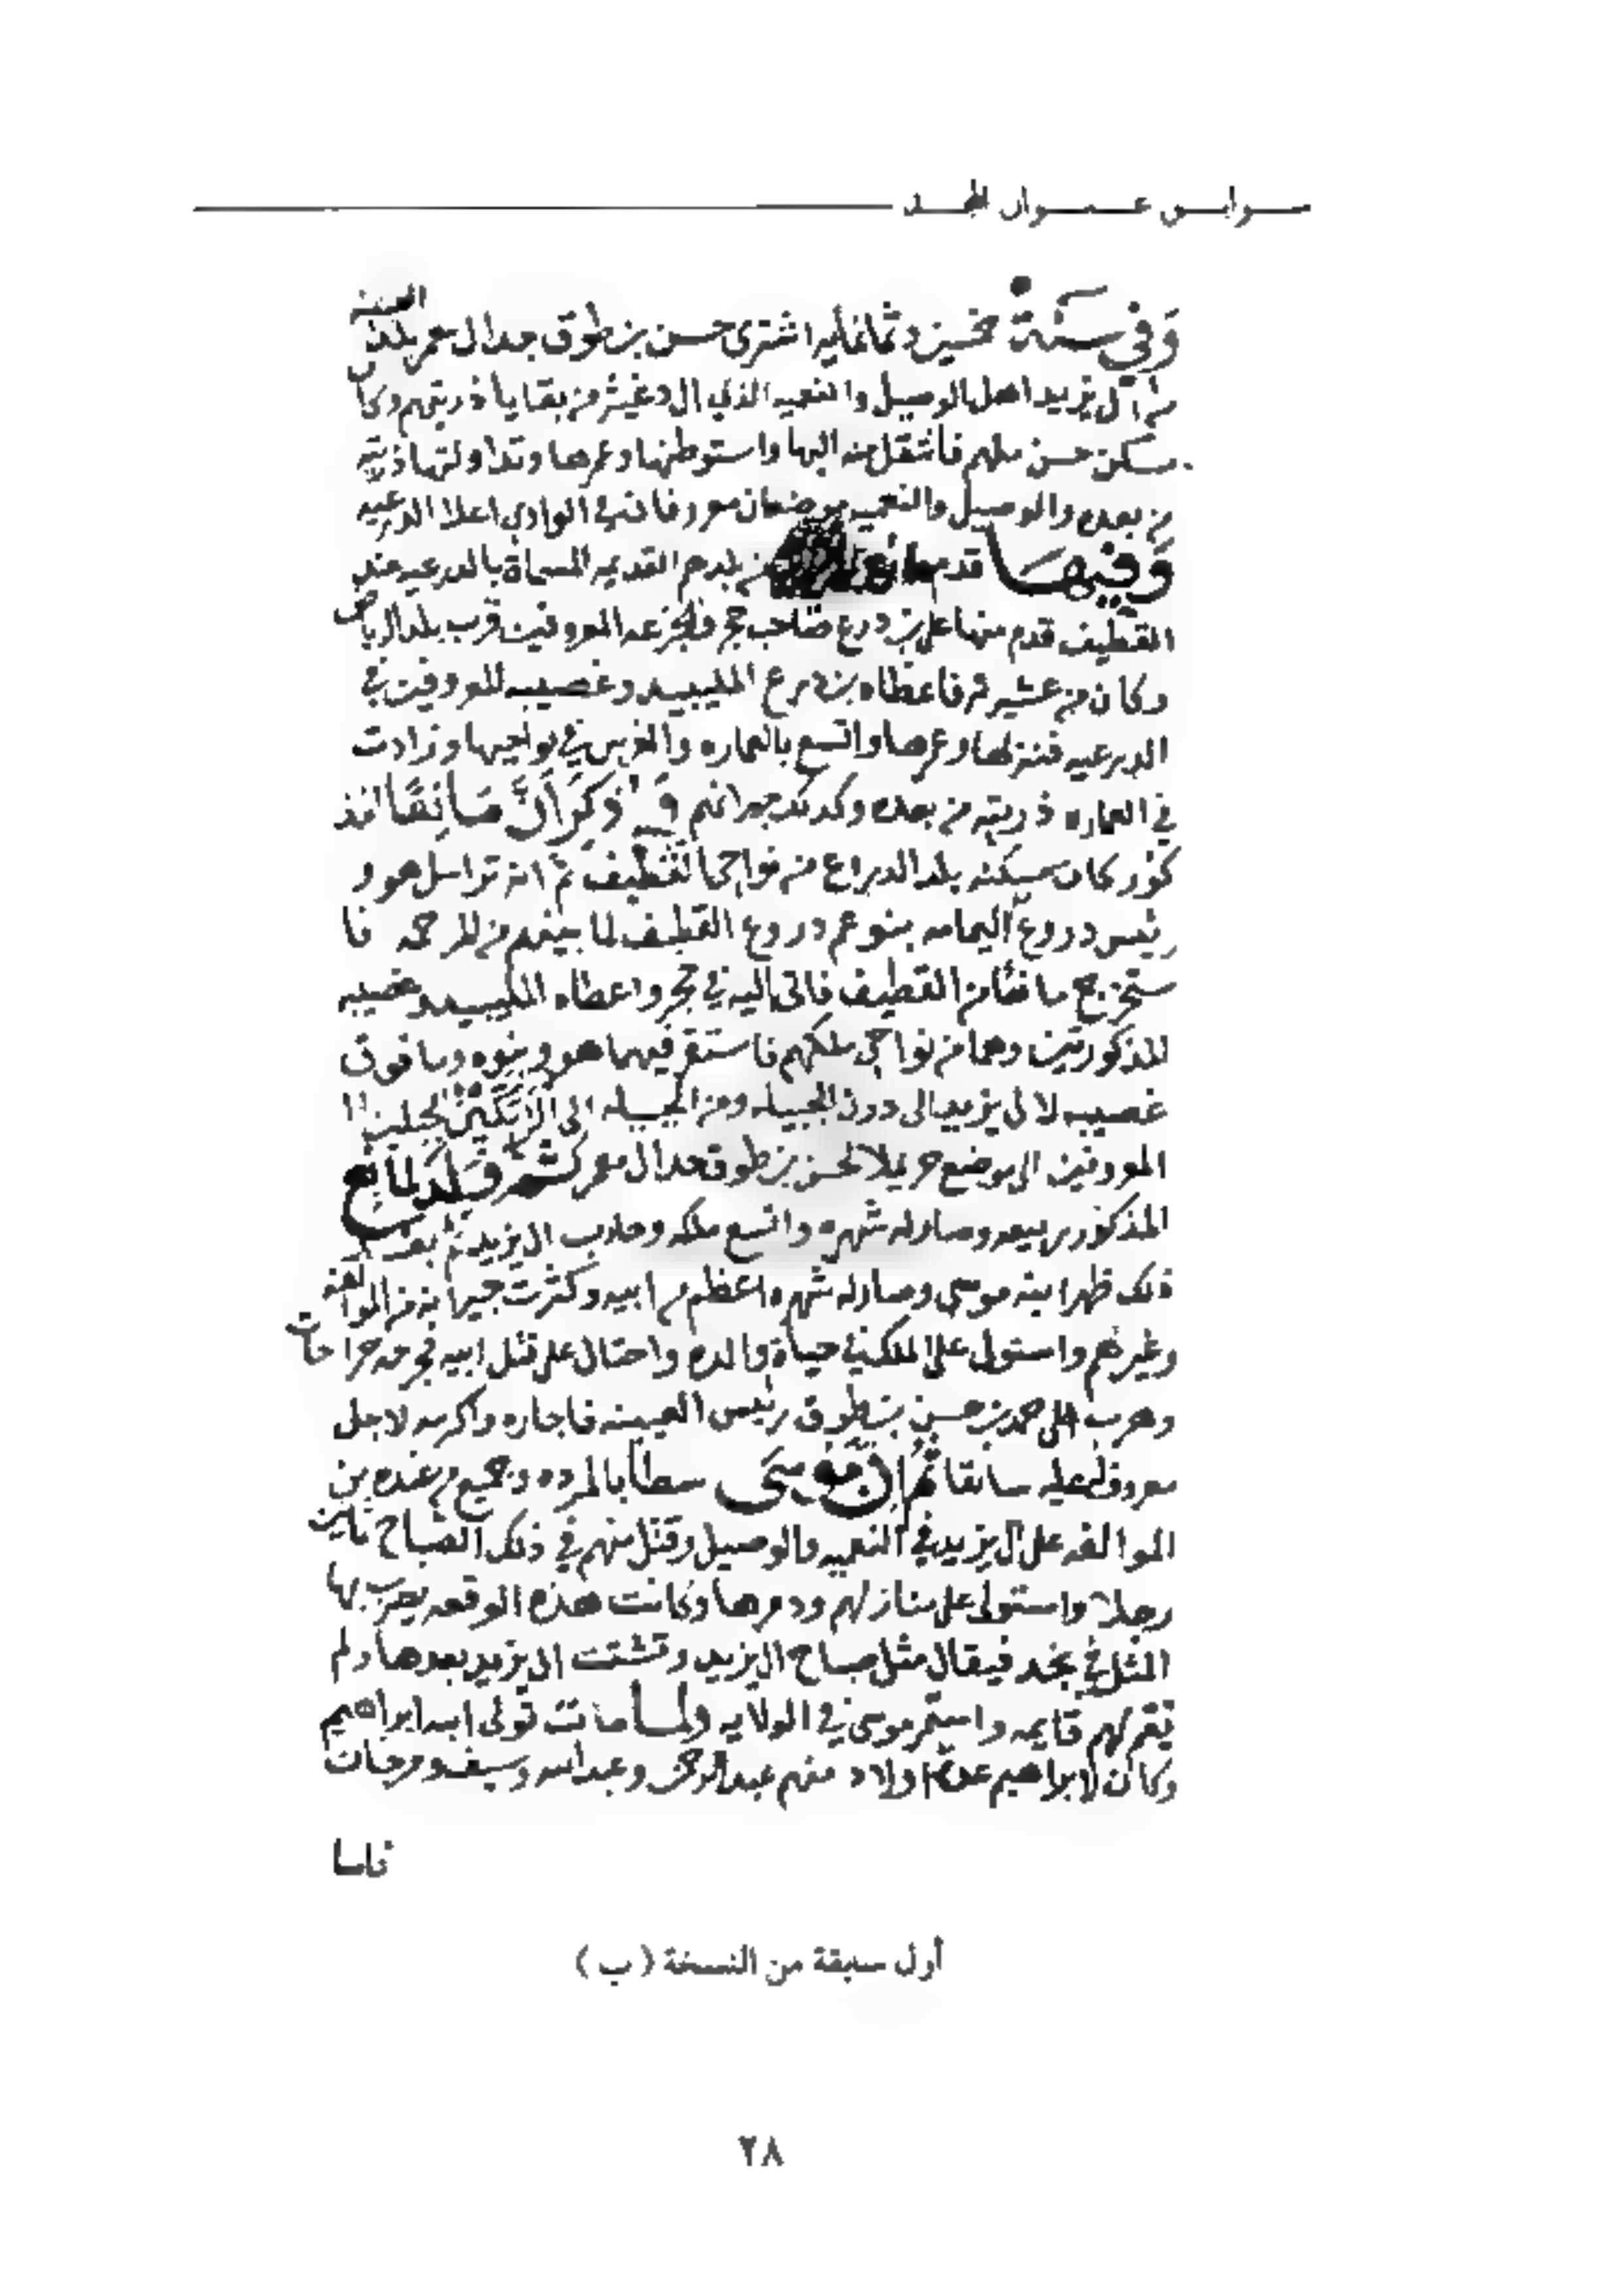 سوابق عنوان المجد
العيينه
وفي سنة خمسين وثمانمايه اشترى حسن بن طوق جد ال معمر بلد
من ال يزيد اهل الوصيل والنعميه الذي ال دغيثر من بقايا ذريتهم وكان
مسكن حسن ملهم فانتقل منه اليها واستوطنها وعمرها وتداولتها ذريته
من بعده والوصيل والنعميه موضعان معروفان في الوادي اعلا الدرعيه
وفيها قدم مانع من بلدهم القديمه المسماة بالدرعيه عند
القطيف قدم منها على بن درع صاحب حجر والجزعه المعروفين قرب بلد الرياض
وكان من عشيرته فاعطاه بن درع المليبيد وغصيبه المعروفين في
الدرعيه فنزلها وعمرها واتسع بالعماره والغرس في نواحيها وزادت
في العماره ذريته من بعده وكذلك جيرانهم وذكر ان مانعا المذ
كور كان مسكنه بلد الدروع من نواحي القطيف ثم انه تراسل هو و
رئيس دروع اليمامه بنو عم دروع القطيف لما بينهم من المرحمه فا
ستخرج مانعا من القطيف فاتى اليه في حجر واعطاه المليبيد وغصيبه
المذكورتين وهما من نواحي ملكهم فاستقر فيهما هو وبنوه وما فوق
غصيبه لال يزيد الى دون الجبيله ومن الجبيله الى الجبلين
المعروفين الى موضع حريملا لحسن بن طوق جد ال معمر ثم ولد لمانع
المذكور ربيعه وصار له شهره واتسع ملكه وحارب ال يزيد ثم بعد
ذلك ظهر ابنه موسى وصار له شهره اعظم من ابيه وكثرت جيرانه من الموالفه
وغيرهم واستولى على الملك في حياة والده واحتال على قتل ابيه فجرحه جراحات
وهرب الى حمد بن حسن بن طوق رئيس العيينه فاجاره واكرمه لاجل
معروف له عليه سابقا ثم ان موسى سطا بالمرده وجميع من عنده من
الموالفه على ال يزيد في النعميه والوصيل وقتل منهم في ذلك الصباح ثمانين
رجلا واستولى على منازلهم ودمرها وكانت هذه الوقعه يضرب بها
المثل في نجد فيقال مثل صباح ال يزيد وتشتت ال يزيد بعدها ولم
تقم لهم قايمه واستمر موسى في الولايه ولما مات تولى ابنه ابراهيم
وكان لابراهيم عدة اولاد منهم عبدالرحمن وعبدالله وسيف ومرخان
فاما
أول سابقة من النسخة (ب)
٢٨